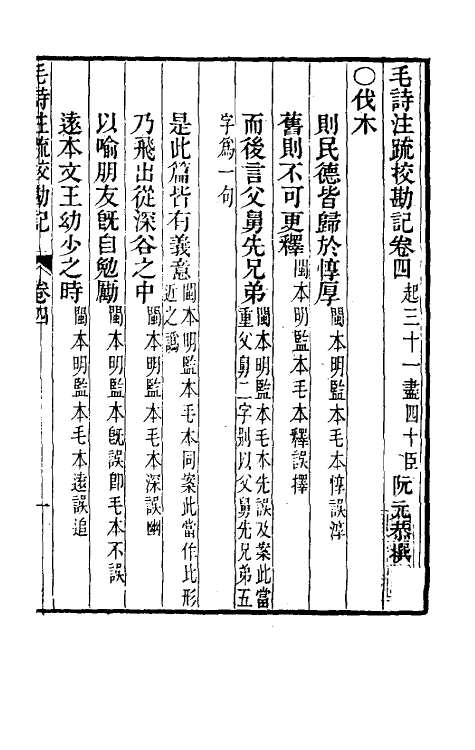 毛詩注疏校勘記卷四 起三十一盡四十 臣阮元恭撰
〇伐木
則民德皆歸於惇厚 閩本明監本毛本惇誤淳
舊則不可更釋 閩本明監本毛本釋誤擇
而後言父舅先兄弟 閩本明監本毛本先誤及案此當重父舅二字別以父舅先兄弟五
字爲一句
是此篇皆有義意 閩本明監本毛本同案此當作比形近之譌
乃飛出從深谷之中 閩本明監本毛本深誤幽
以喻朋友旣自勉勵 閩本明監本旣誤卽毛本不誤
遠本文王幼少之時 閩本明監本毛本遠誤追
毛詩注疏校勘記 卷四 一